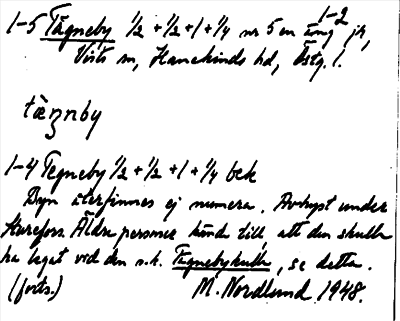 1-2
1-5 Tägneby ½ + ½ + 1 + ¼ nr 5 en äng jh,
Vists sn, Hanekinds hd, Östg. l.
tæʒnby
1-4 Tegneby ½ + ½ + 1 + ¼ bek
Byn återfinnes ej numera. Avhyst under
Sturefors. Äldre personer känna till, att den skulle
ha legat vid den s.k. Tägnebykulle, se detta.
(forts.) M. Nordlund 1948.